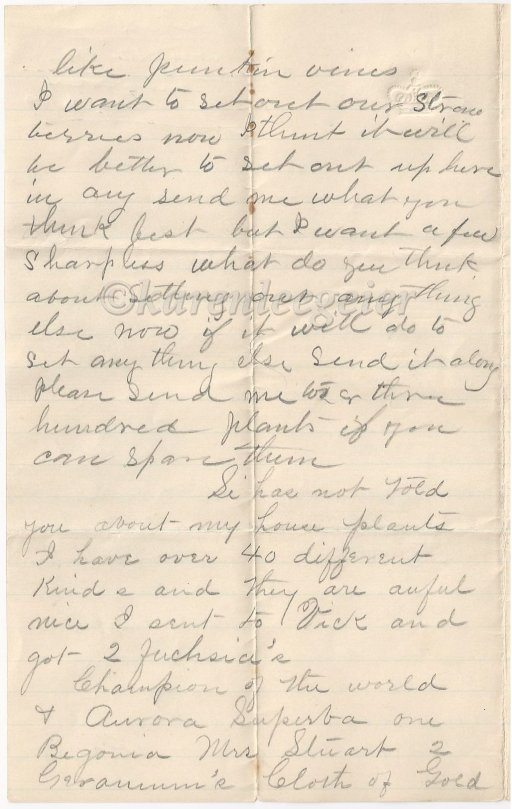 like punkin vines
I want to set out our Straw
berries now I think it will
be better to set out up here
in any send me what you
think best but I want a few
Sharpless what do you think
about setting out any thing
else now if it will do to
set any thing else send it along
please send me two or three
hundred plants if you
can spare them
Si has not told
you about my house plants
I have over 40 different
kinds and they are auful
nice I sent to Vick and
got 2 fuchsia's
Champion of the world
& Aurora Superba one
Begonia Mrs Stuart 2
Geranium's Cloth of Gold
©karenleegeier